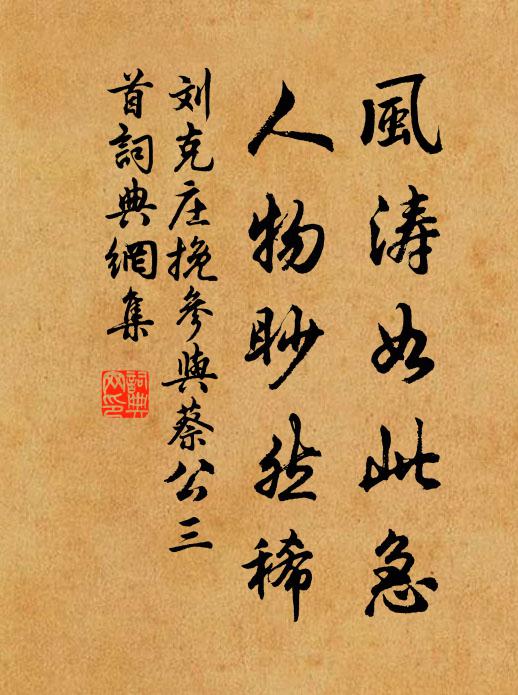 風涛如此急
人物眇然稀
刘克庄挽參與蔡公三
首詞典網集
詞典网印